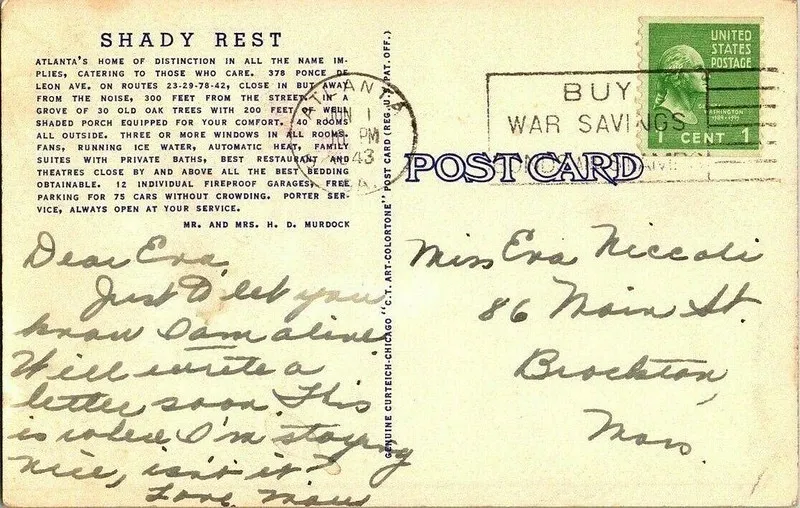 SHADY REST
ATLANTA'S HOME OF DISTINCTION IN ALL THE NAME IM-
PLIES, CATERING TO THOSE WHO CARE. 378 PONCE DE
LEON AVE. ON ROUTES 23-29-78-42, CLOSE IN BUT AWAY
FROM THE NOISE, 300 FEET FROM THE STREET. IN A
GROVE OF 30 OLD OAK TREES WITH 200 FEET OF WELL
SHADED PORCH EQUIPPED FOR YOUR COMFORT. 40 ROOMS
ALL OUTSIDE. THREE OR MORE WINDOWS IN ALL ROOMS.
FANS, RUNNING ICE WATER, AUTOMATIC HEAT, FAMILY
SUITES WITH PRIVATE BATHS, BEST RESTAURANT AND
THEATRES CLOSE BY AND ABOVE ALL THE BEST BEDDING
OBTAINABLE. 12 INDIVIDUAL FIREPROOF GARAGES, FREE
PARKING FOR 75 CARS WITHOUT CROWDING. PORTER SER-
VICE, ALWAYS OPEN AT YOUR SERVICE.
MR. AND MRS. H. D. MURDOCK
Dear Eva,
Just to let you
know I am alive
Will write a
letter soon. This
is where I'm staying
nice, isn't it?
Love
GENUINE CURTEICH-CHICAGO "C.T. ART-COLORTONE" POST CARD (REG. U.S. PAT. OFF.)
ATLANTA
JUN 1
PM
43
GA.
BUY
WAR SAVINGS
UNITED
STATES
POSTAGE
WASHINGTON
1 CENT 1
POST CARD
Miss Eva Niccoli
86 Main St.
Brockton,
Mass.